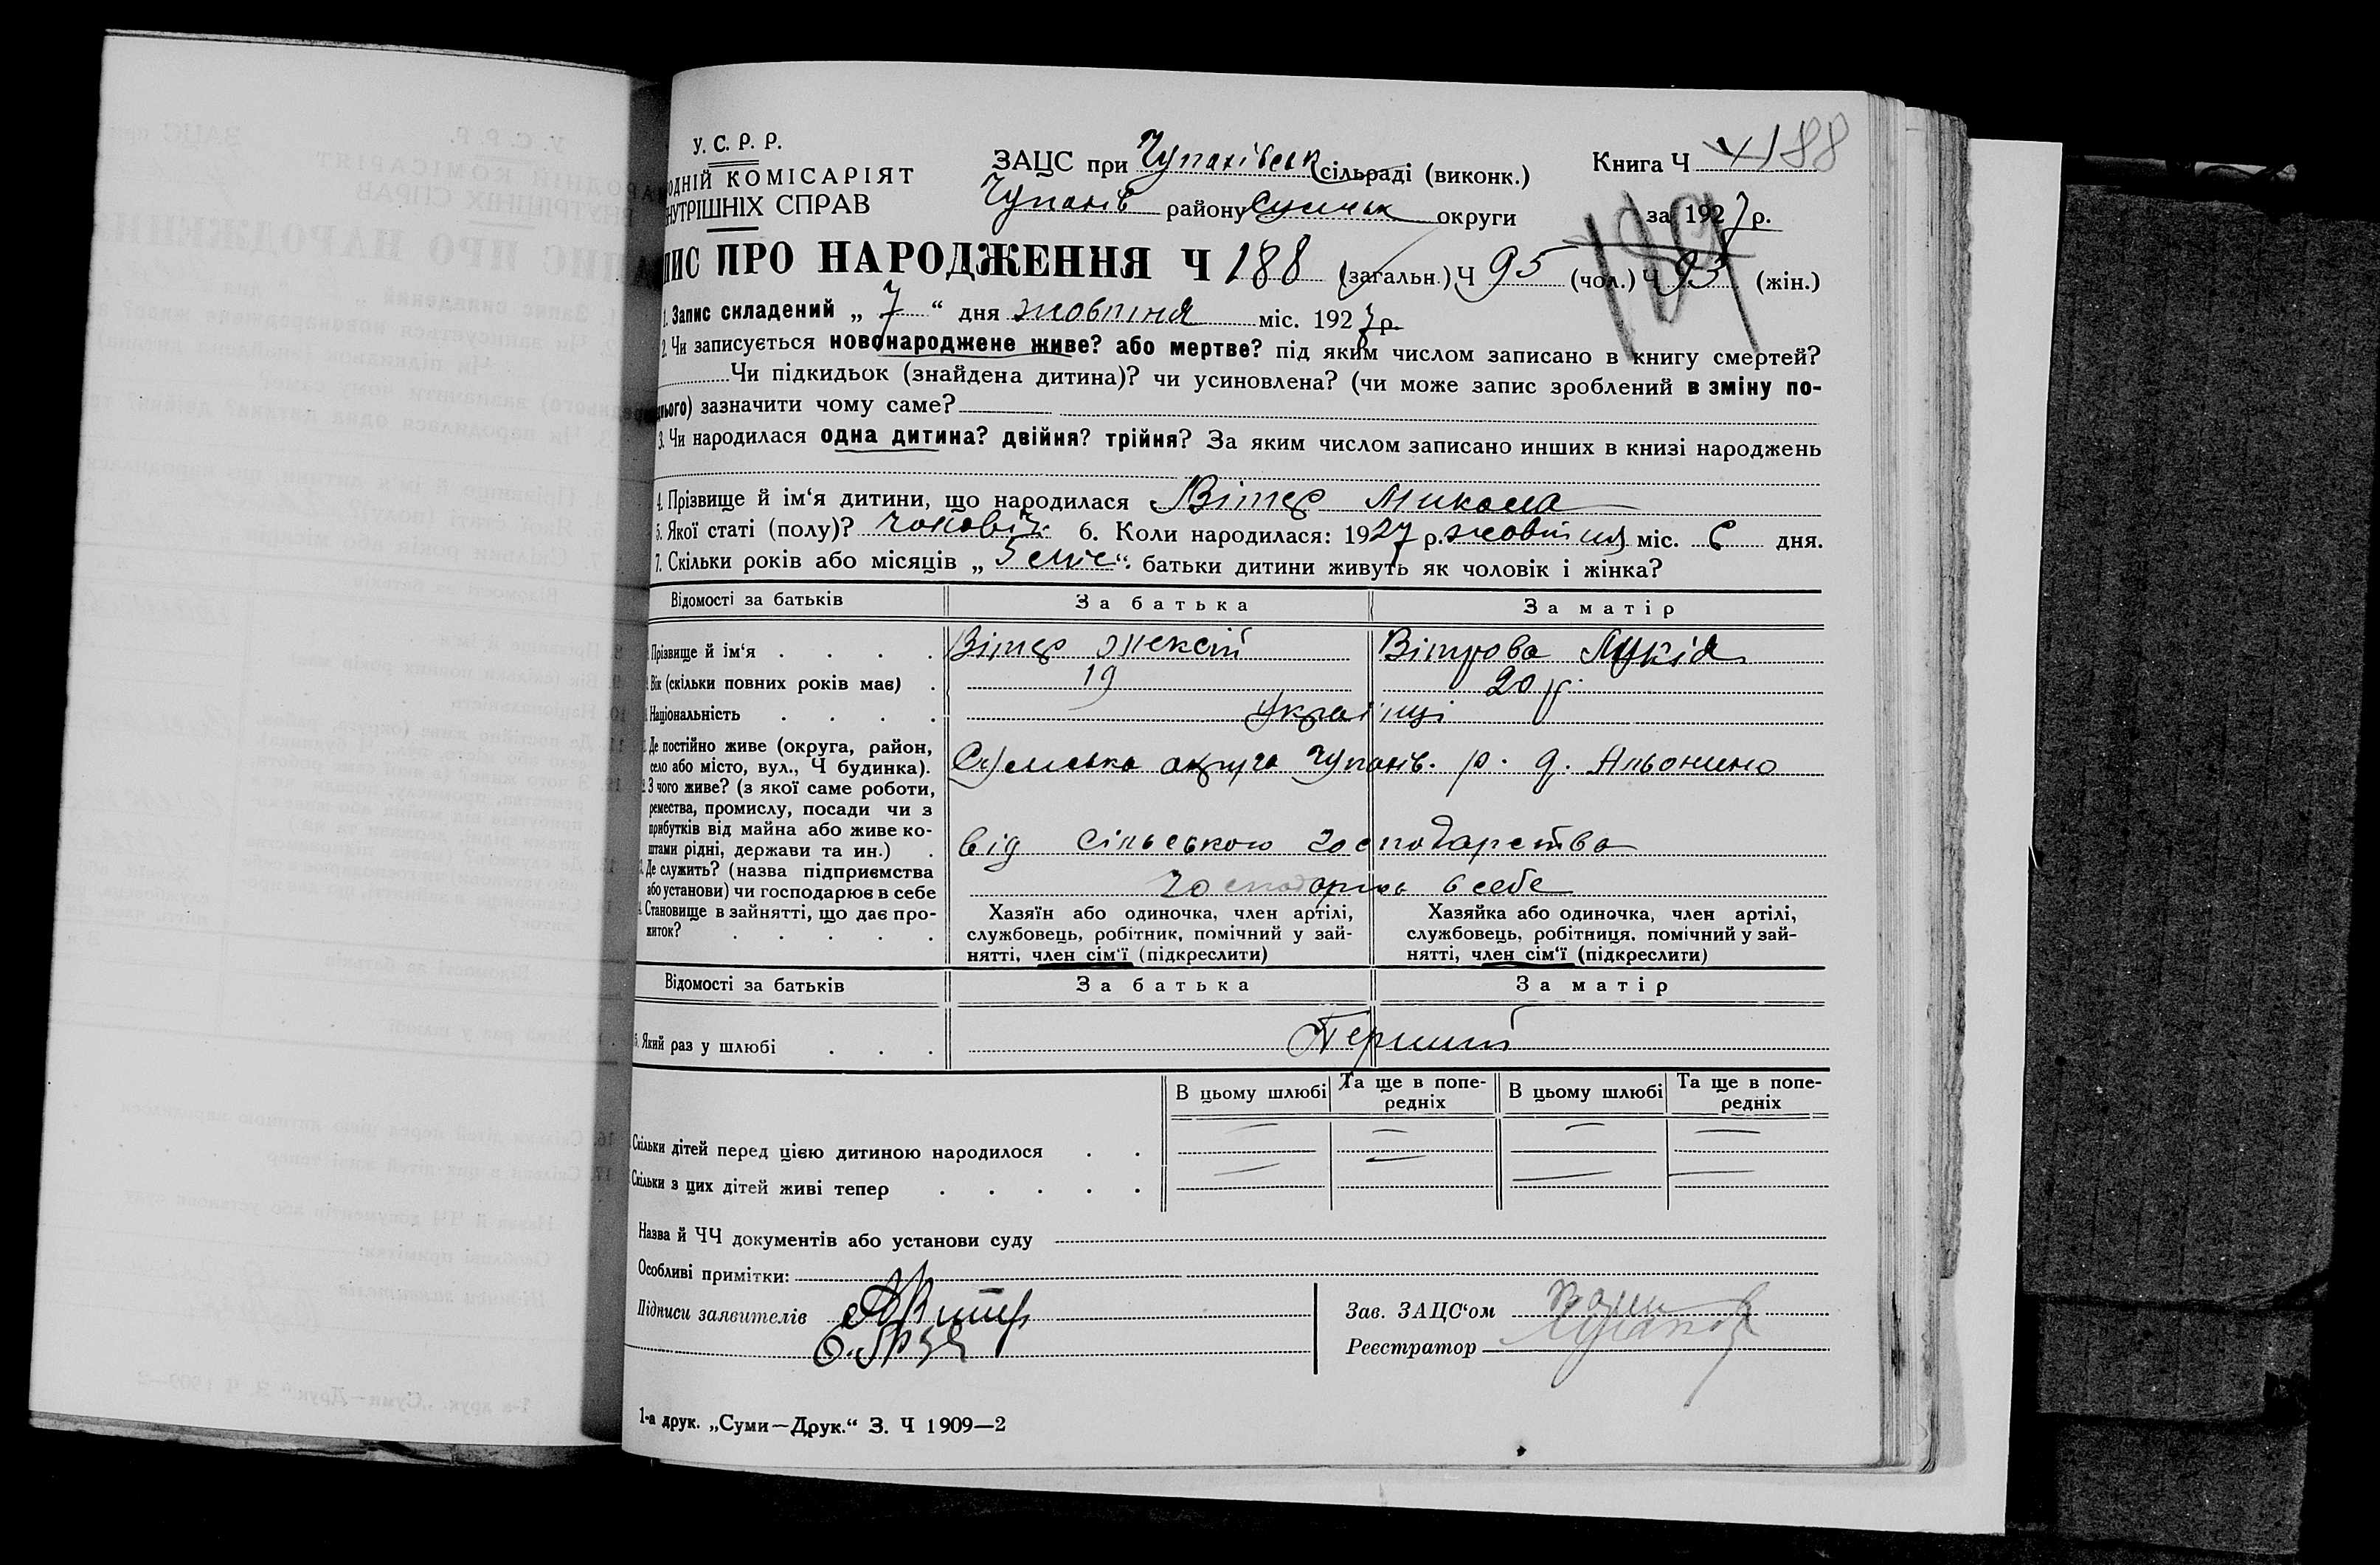 У. С. Р. Р.
ОДНІЙ КОМІСАРІЯТ
НУТРІШНІХ СПРАВ
ЗАЦС при Чупахівськ сільраді (виконк.)
Чупахів району Сумськ округи
Книга Ч 188
за 1927 р.
189
ПИС ПРО НАРОДЖЕННЯ Ч 188 (загальн.) Ч 95 (чол.) Ч 93 (жін.)
1. Запис складений „ 7 “ дня жовтня міс. 1927 р.
2. Чи записується новонароджене живе? або мертве? під яким числом записано в книгу смертей?
Чи підкидьок (знайдена дитина)? чи усиновлена? (чи може запис зроблений в зміну по-
нього) зазначити чому саме?
3. Чи народилася одна дитина? двійня? трійня? За яким числом записано инших в книзі народжень
4. Прізвище й ім‘я дитини, що народилася Вітер Микола
5. Якої статі (полу)? чоловіч. 6. Коли народилася: 1927 р. жовтня міс. 6 дня.
7. Скільки років або місяців „ 5 міс “ батьки дитини живуть як чоловік і жінка?
Відомості за батьків За батька За матір
Прізвище й ім‘я Вітер Олексій Вітрова Лукія
Вік (скільки повних років має) 19 20 р.
Національність українці
Де постійно живе (округа, район,
село або місто, вул., Ч будинка). Сумська округа Чупахів. р. д. Альонино
З чого живе? (з якої саме роботи,
ремества, промислу, посади чи з
прибутків від майна або живе ко-
штами рідні, держави та ин.) від сільського господарства
Де служить? (назва підприємства
або установи) чи господарює в себе господарює в себе
Становище в зайнятті, що дає про-
житок?
Хазяїн або одиночка, член артілі,
службовець, робітник, помічний у зай-
нятті, член сім‘ї (підкреслити)
Хазяйка або одиночка, член артілі,
службовець, робітниця, помічний у зай-
нятті, член сім‘ї (підкреслити)
Відомості за батьків За батька За матір
Який раз у шлюбі Перший
В цьому шлюбі Та ще в попе-
редніх В цьому шлюбі Та ще в попе-
редніх
Скільки дітей перед цією дитиною народилося
Скільки з цих дітей живі тепер
Назва й ЧЧ документів або установи суду
Особливі примітки:
Підписи заявителів А Витер
Зав. ЗАЦС‘ом
Реєстратор
1-а друк. „Суми—Друк.“ З. Ч 1909—2